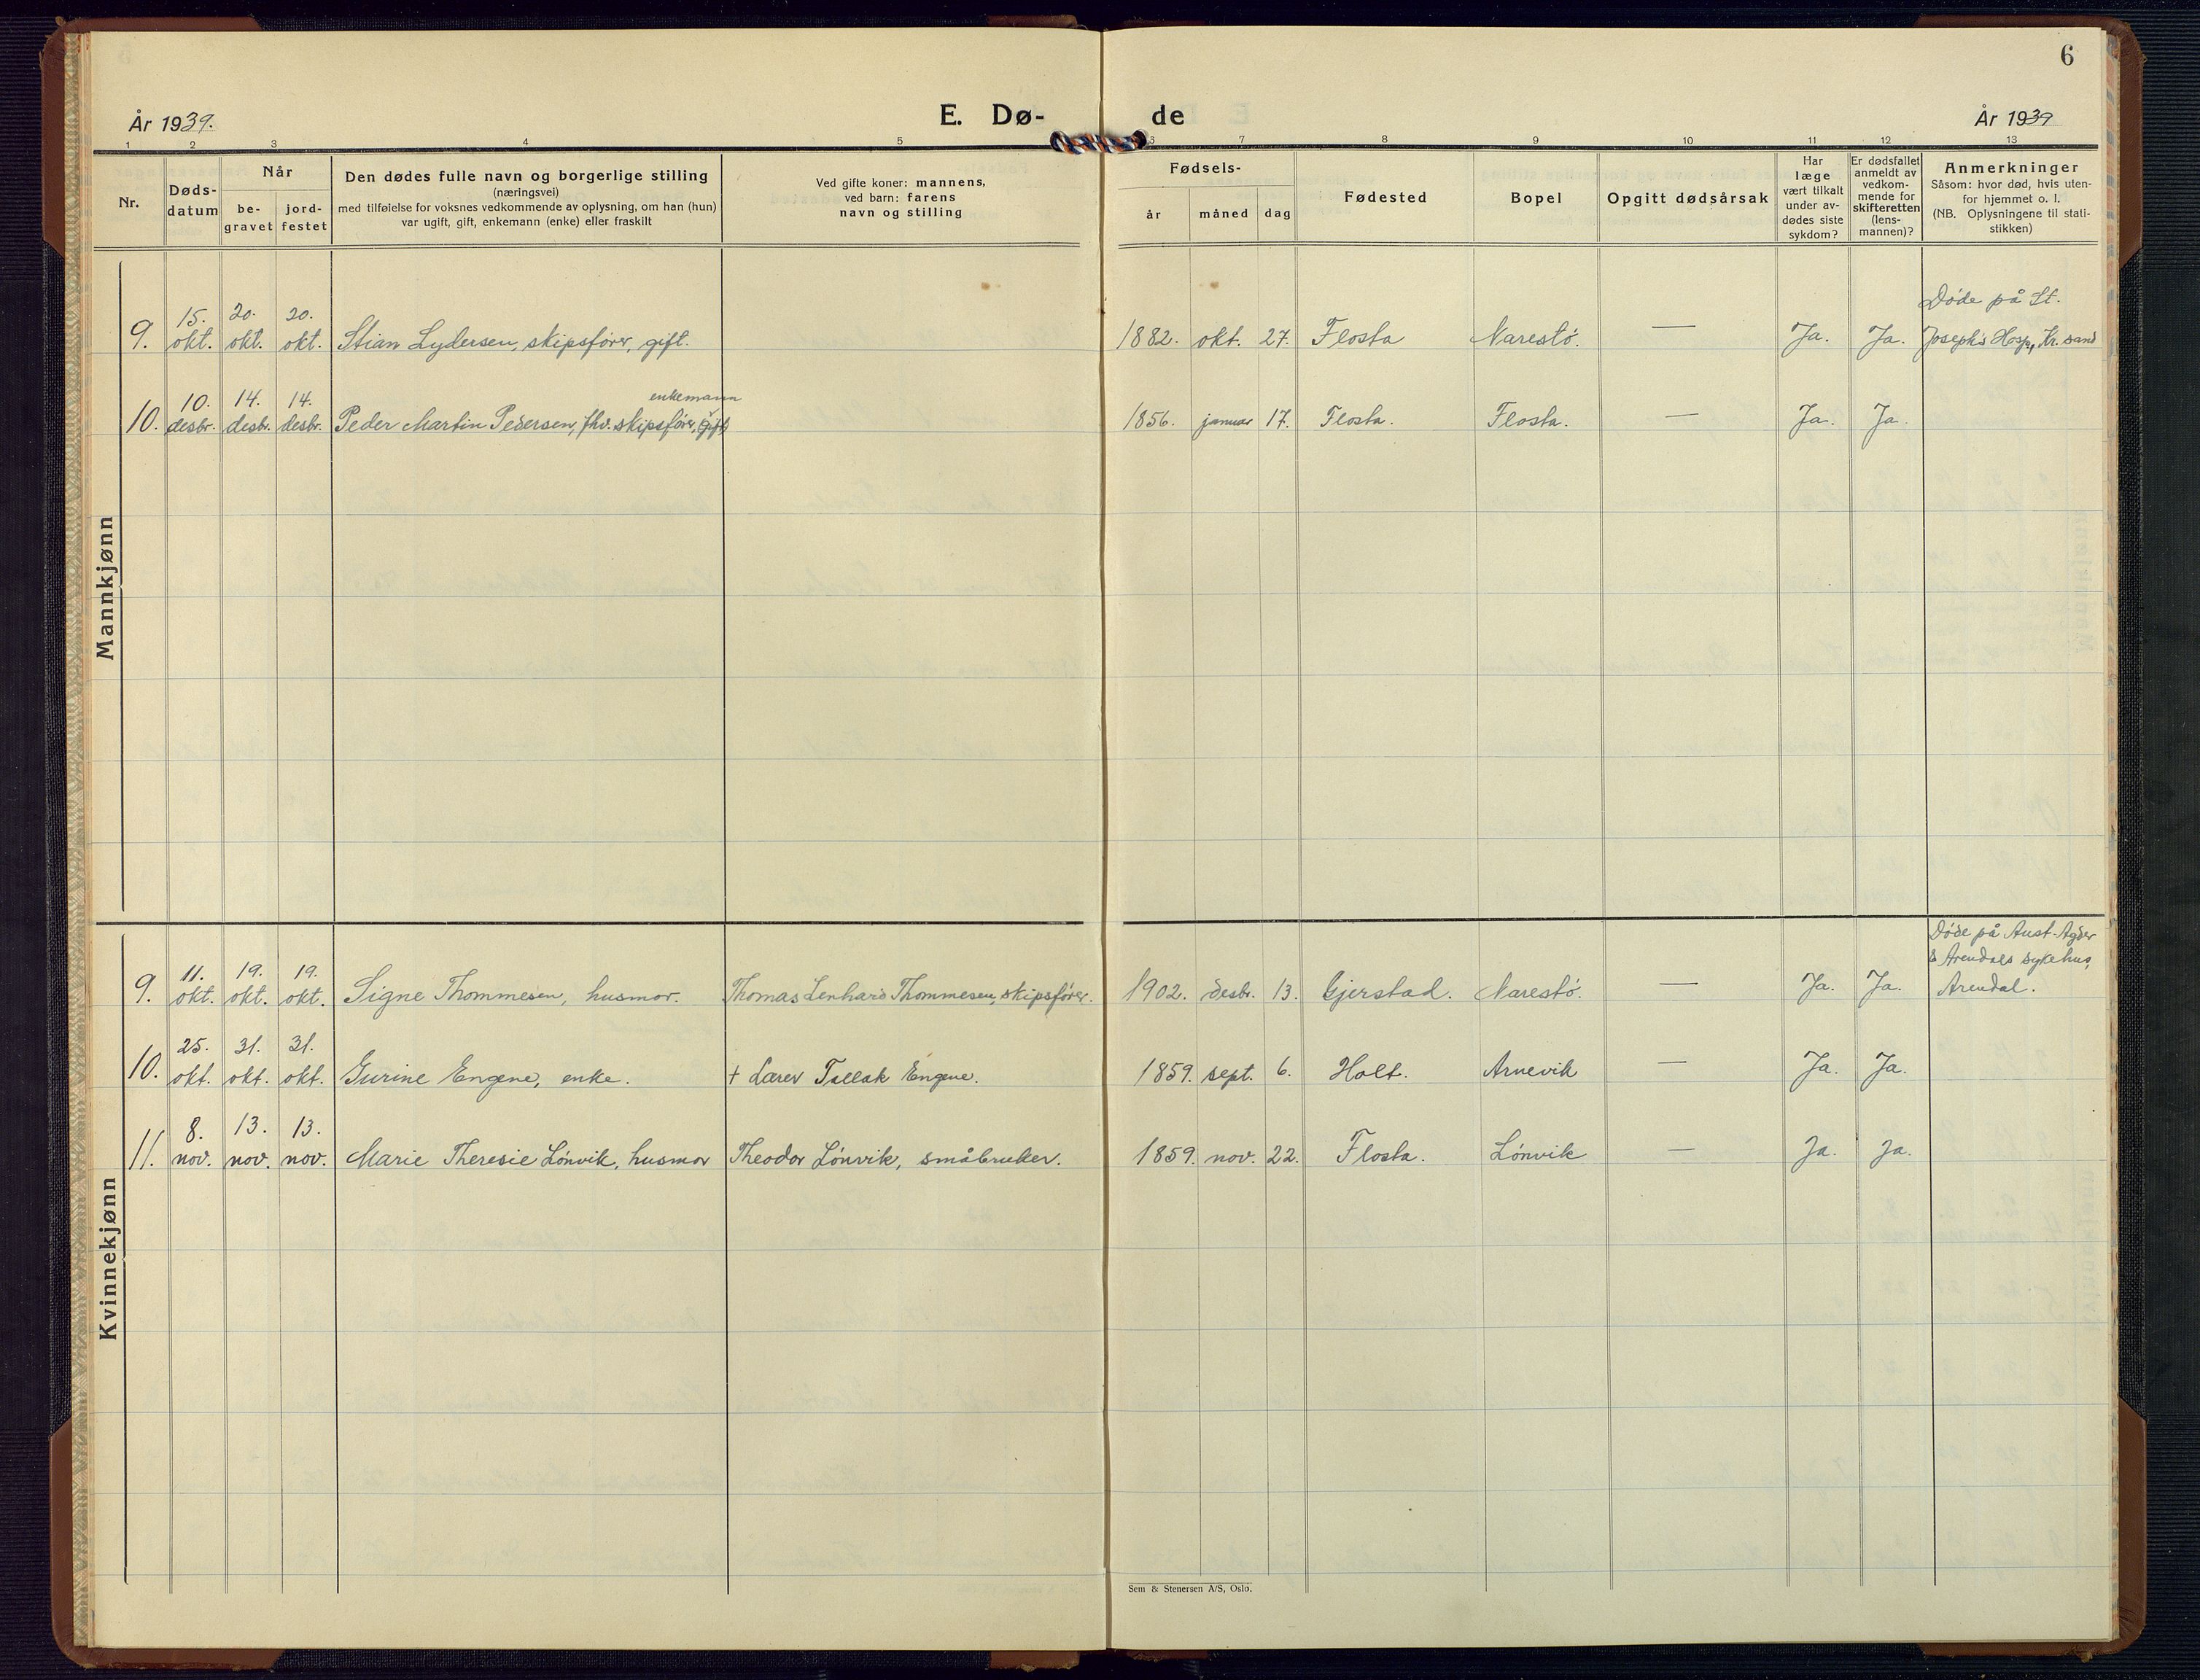 6
År 1939.
E. Dø-
de
År 1939
1 2 3 4 5 6 7 8 9 10 11 12 13
Nr.
Døds-
datum
Når
be-
gravet
jord-
festet
Den dødes fulle navn og borgerlige stilling
(næringsvei)
med tilføielse for voksnes vedkommende av oplysning, om han (hun)
var ugift, gift, enkemann (enke) eller fraskilt
Ved gifte koner: mannens,
ved barn: farens
navn og stilling
Fødsels-
år måned dag
Fødested
Bopel
Opgitt dødsårsak
Har
læge
vært tilkalt
under av-
dødes siste
sykdom?
Er dødsfallet
anmeldt av
vedkom-
mende for
skifteretten
(lens-
mannen)?
Anmerkninger
Såsom: hvor død, hvis uten-
for hjemmet o. l.
(NB. Oplysningene til stati-
stikken)
Mannkjønn
15. 20. 20. Døde på St.
9. okt. okt. okt. Stian Lydersen, skipsfører, gift. 1882. okt. 27. Flosta Narestö. — Ja. Ja. Joseph's Hosp, Kr. sand
10. 14. 14. enkemann
10. desbr. desbr. desbr. Peder Martin Pedersen, fhv. skipsfører, gift 1856. januar 17. Flosta. Flosta. — Ja. Ja.
Kvinnekjønn
Döde på Aust-Agder
11. 19. 19. & Arendals sykehus,
9. okt. okt. okt. Signe Thommesen, husmor. Thomas Lenhard Thommesen, skipsfører. 1902. desbr. 13. Gjerstad. Narestö. — Ja. Ja. Arendal.
25. 31. 31.
10. okt. okt. okt. Gurine Engene, enke. + Lærer Tallak Engene. 1859. sept. 6. Holt. Arnevik — Ja. Ja.
8. 13. 13.
11. nov. nov. nov. Marie Theresie Lönvik, husmor Theodor Lönvik, småbruker. 1859. nov. 22. Flosta. Lönvik — Ja. Ja.
Sem & Stenersen A/S, Oslo.